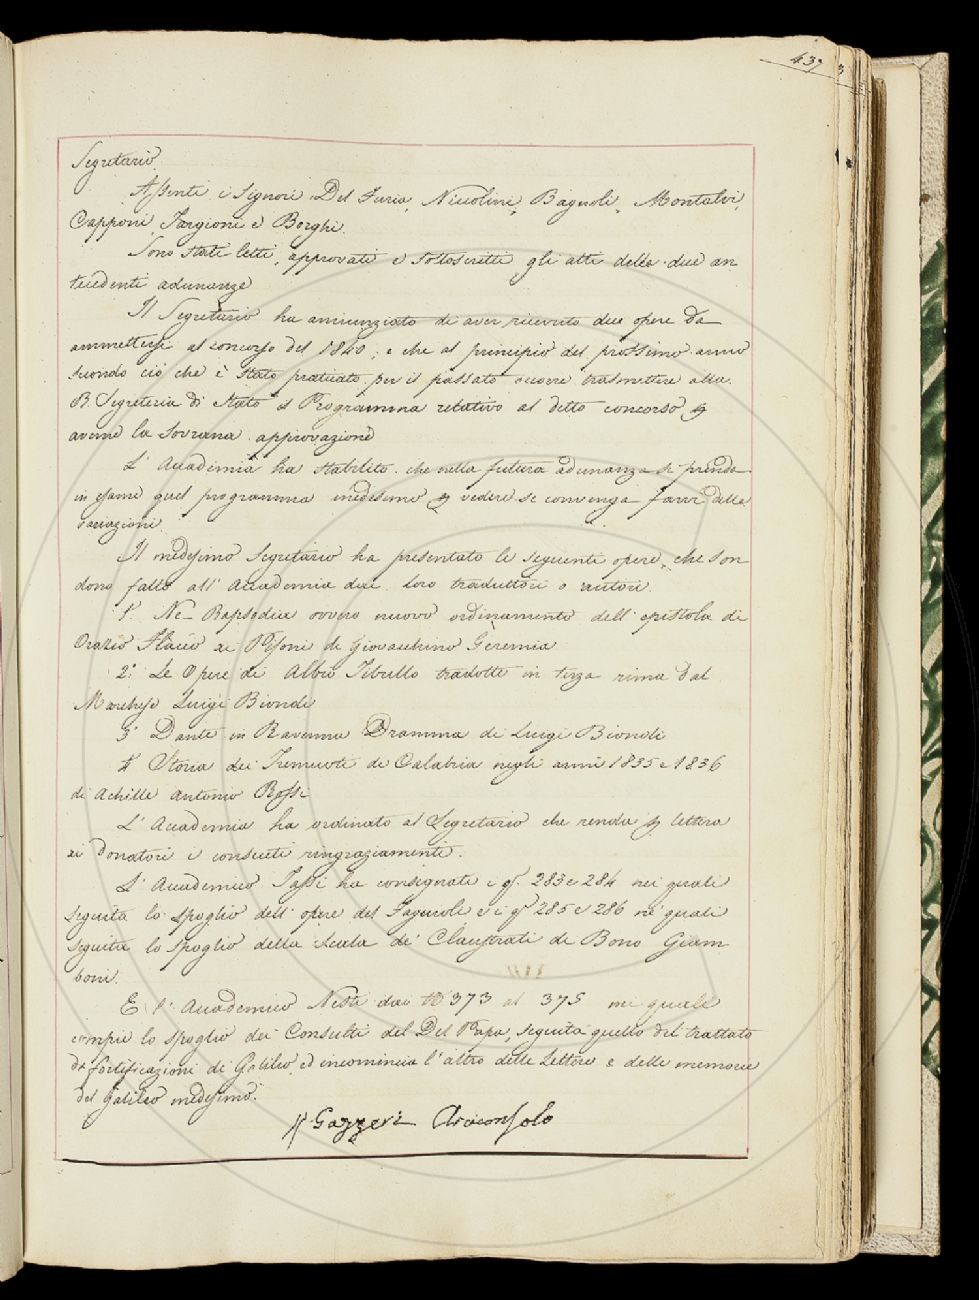 437
Segretario.
Assenti i Signori Del Furia, Niccolini, Bagnoli, Montalvi,
Capponi, Targioni e Borghi.
Sono stati letti, approvati e sottoscritti gli atti delle due an
tecedenti adunanze
Il Segretario ha annunziato di aver ricevuto due opere da
ammettersi al concorso del 1840; e che al principio del prossimo anno
secondo ciò che è stato praticato per il passato occorre trasmettere alla
R. Segreteria di Stato il Programma relativo al detto concorso p
averne la Sovrana approvazione
L' Accademia ha stabilito che nella futura adunanza si prenda
in esame quel programma medesimo p vedere se convenga farvi delle
variazioni.
Il medesimo Segretario ha presentato le seguenti opere, che son
dono fatto all' Accademia dai loro traduttori o autori.
1° Ne Rapsodia ovvero nuovo ordinamento dell' epistola di
Orazio Flacco ai Pisoni di Giovacchino Geremia
2° Le Opere di Albio Tibullo tradotte in terza rima dal
Marchese Luigi Biondi
3° Dante in Ravenna Dramma di Luigi Biondi
4° Storia dei Tremuoti di Calabria negli anni 1835 e 1836
di Achille Antonio Rossi
L' Accademia ha ordinato al Segretario che renda p lettera
ai Donatori i consueti ringraziamenti.
L' Accademico Tassi ha consegnati i q. 283 e 284 nei quali
seguita lo spoglio dell' opere del Fagiuoli e i q. 285 e 286 ne' quali
seguita lo spoglio della Scala de' Claustrali di Bono Giam
boni.
E l' Accademico Nesti dai N° 373 al 375 nei quali
compie lo spoglio dei Consulti del Del Papa, seguita quello del trattato
di fortificazioni di Galileo, ed incomincia l' altro delle Lettere e delle memorie
del Galileo medesimo.
Gazzeri Arciconsolo